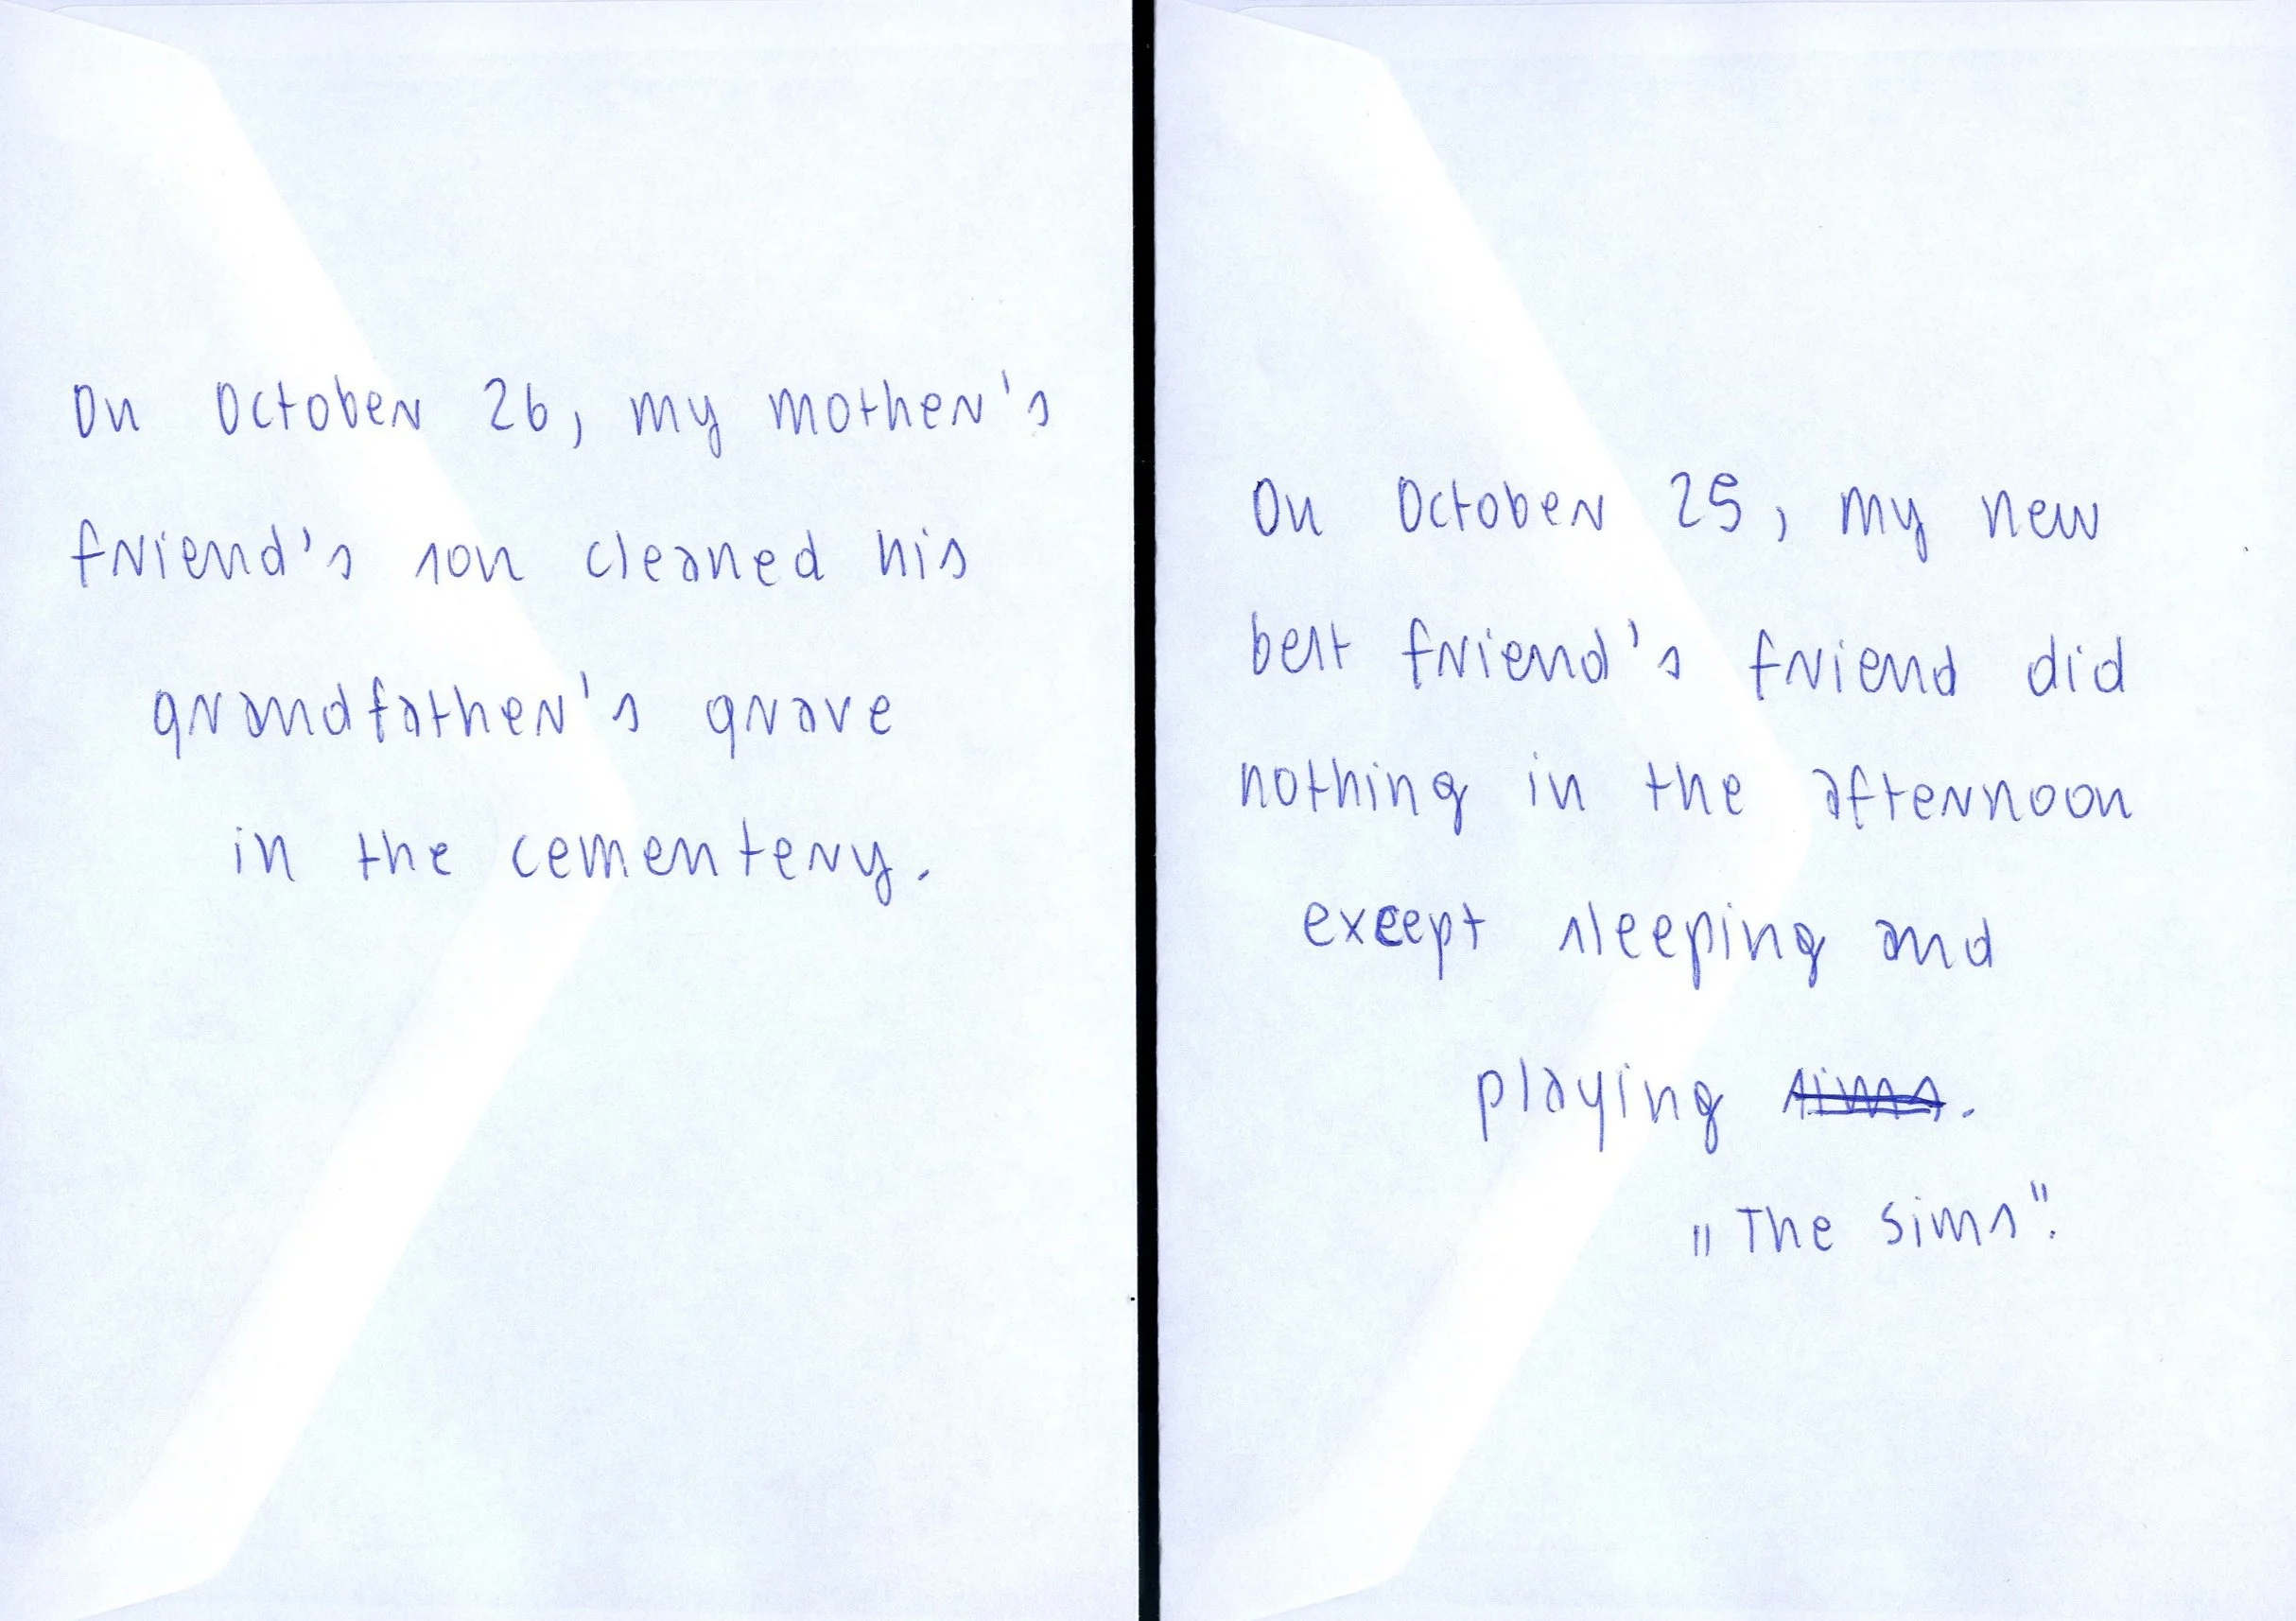 On October 26, my mother's
friend's son cleaned his
grandfather's grave
in the cementery.
On October 25, my new
best friend's friend did
nothing in the afternoon
except sleeping and
playing sims.
„The Sims".